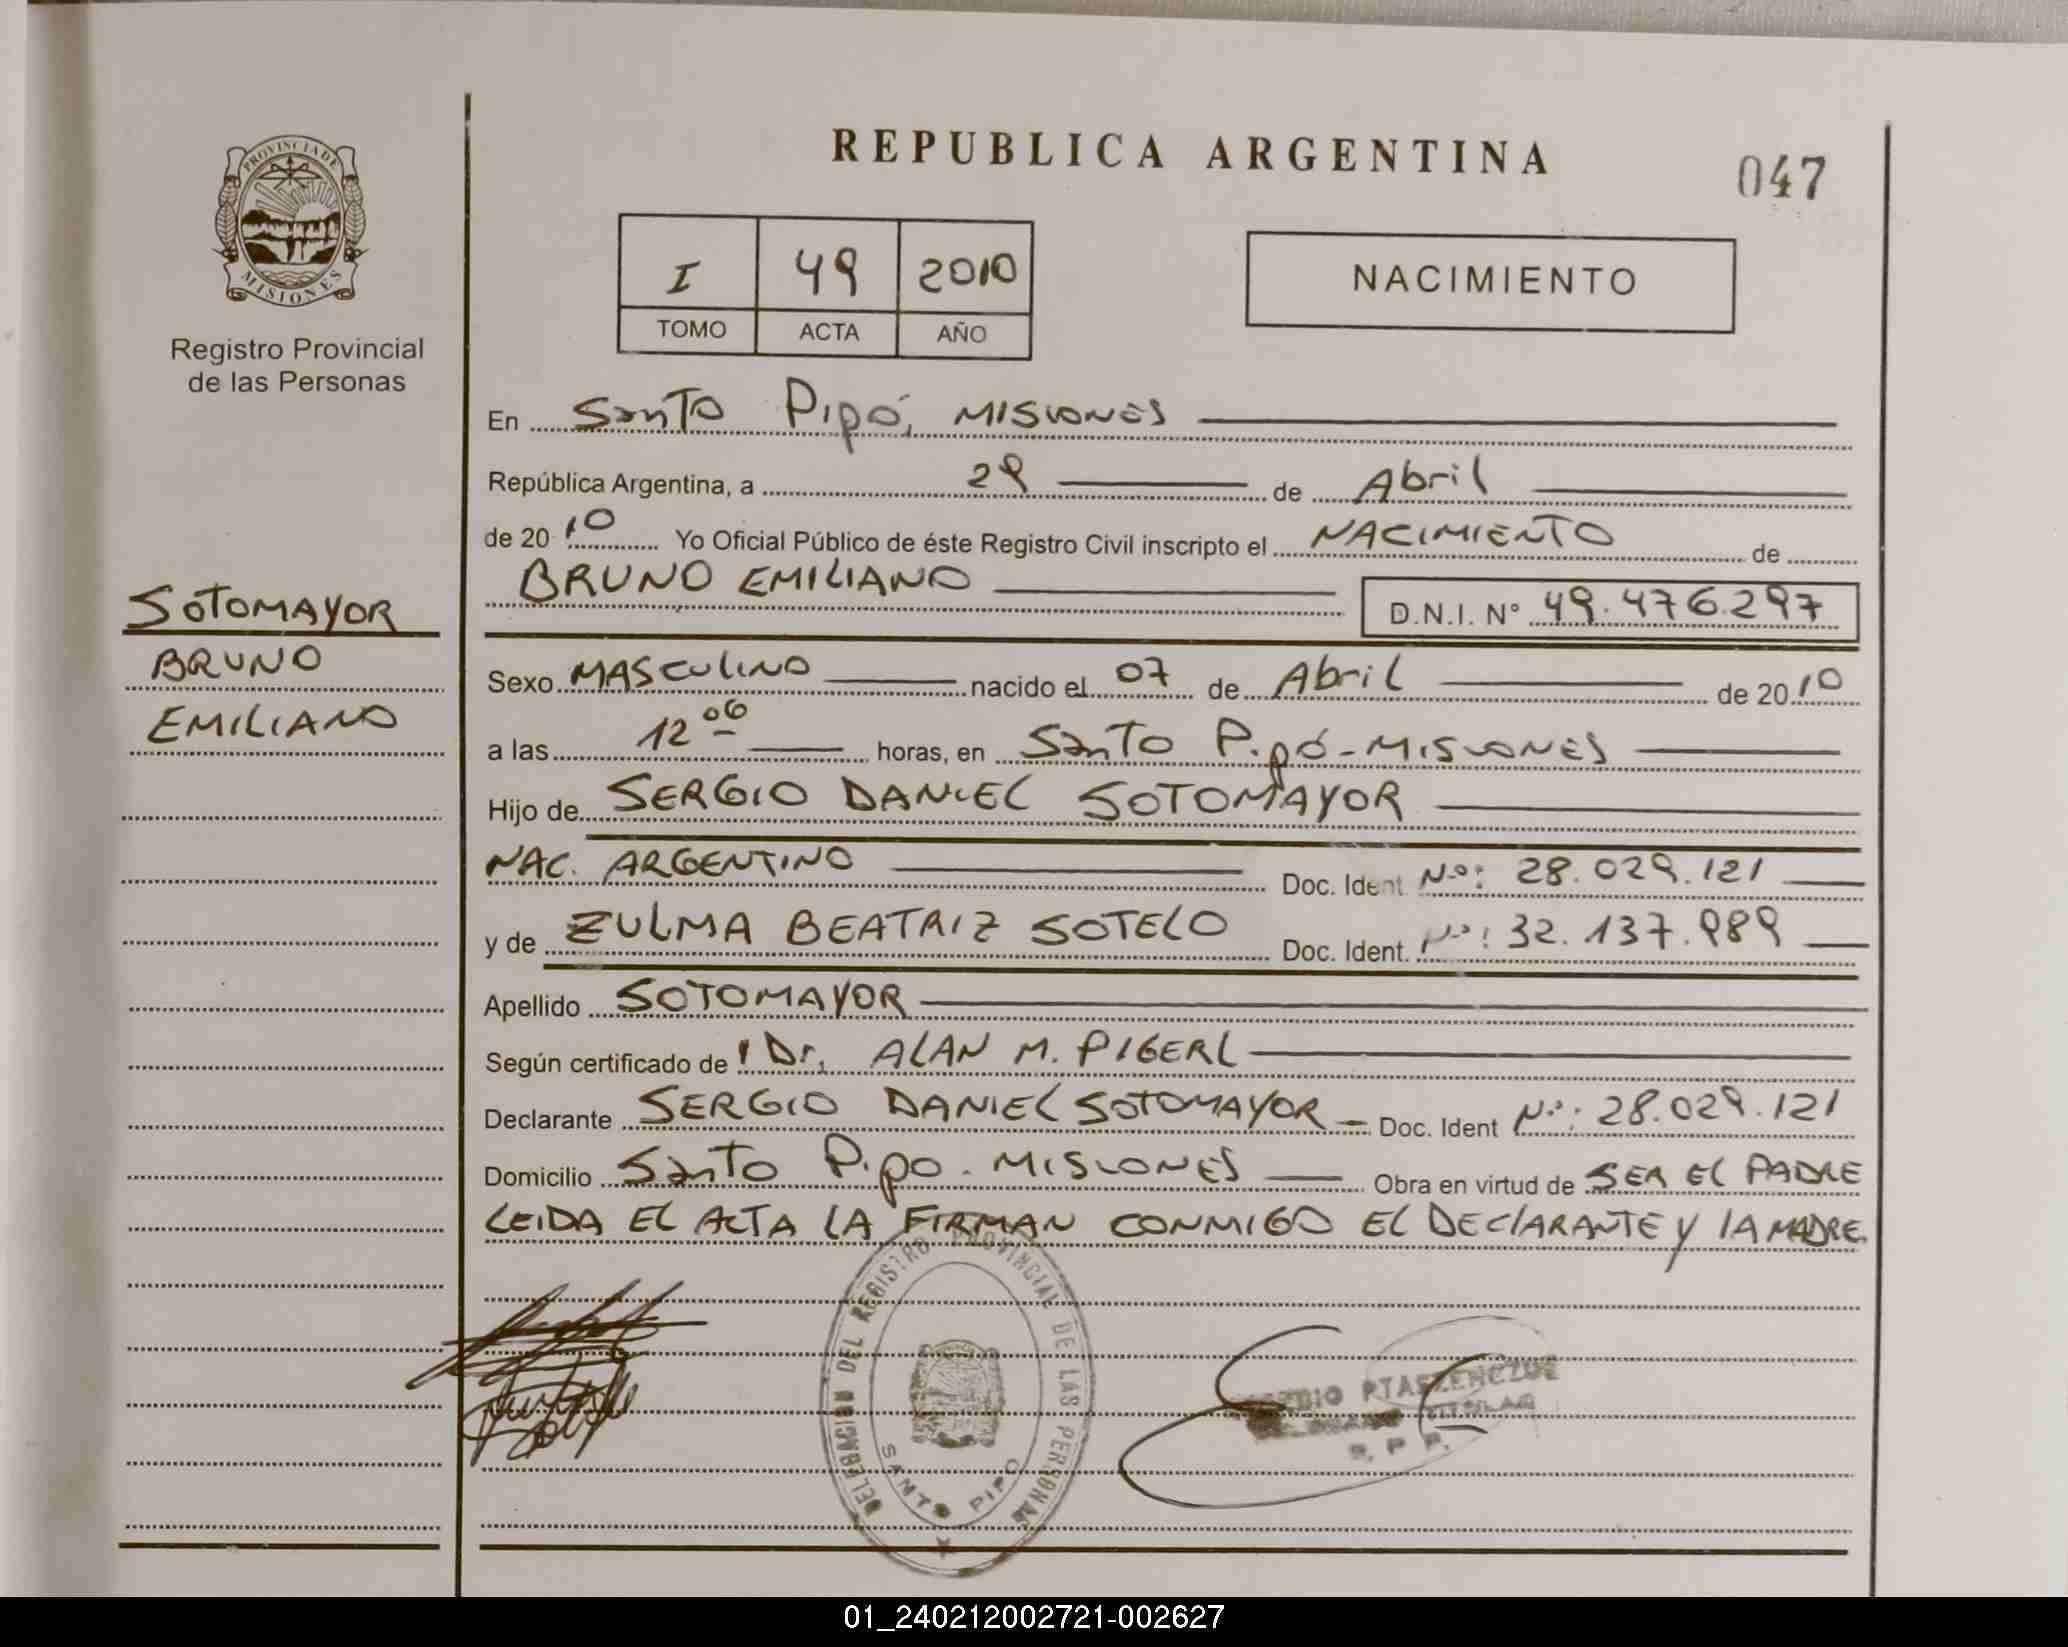 REPUBLICA ARGENTINA
047
PROVINCIA DE
MISIONES
Registro Provincial
de las Personas
I 49 2010
TOMO ACTA AÑO
NACIMIENTO
En Santo Pipó, MISIONES
República Argentina, a 29 de Abril
de 2010 Yo Oficial Público de éste Registro Civil inscripto el NACIMIENTO de
BRUNO EMILIANO D.N.I. N° 49.476.297
SOTOMAYOR
BRUNO
EMILIANO
Sexo MASCULINO nacido el 07 de Abril de 2010
a las 12 06 horas, en Santo Pipó-MISIONES
Hijo de SERGIO DANIEL SOTOMAYOR
NAC. ARGENTINO Doc. Ident Nº: 28.029.121
y de ZULMA BEATRIZ SOTELO Doc. Ident. Nº: 32.137.989
Apellido SOTOMAYOR
Según certificado de Dr. ALAN M. PIGERL
Declarante SERGIO DANIEL SOTOMAYOR Doc. Ident Nº: 28.029.121
Domicilio Santo Pipo - MISIONES Obra en virtud de SER EL PADRE
LEIDA EL ACTA LA FIRMAN CONMIGO EL DECLARANTE Y LA MADRE.
DELEGACION DEL REGISTRO PROVINCIAL DE LAS PERSONAS
SANTO PIPO
TITULAR
R. P. P.
01_240212002721-002627